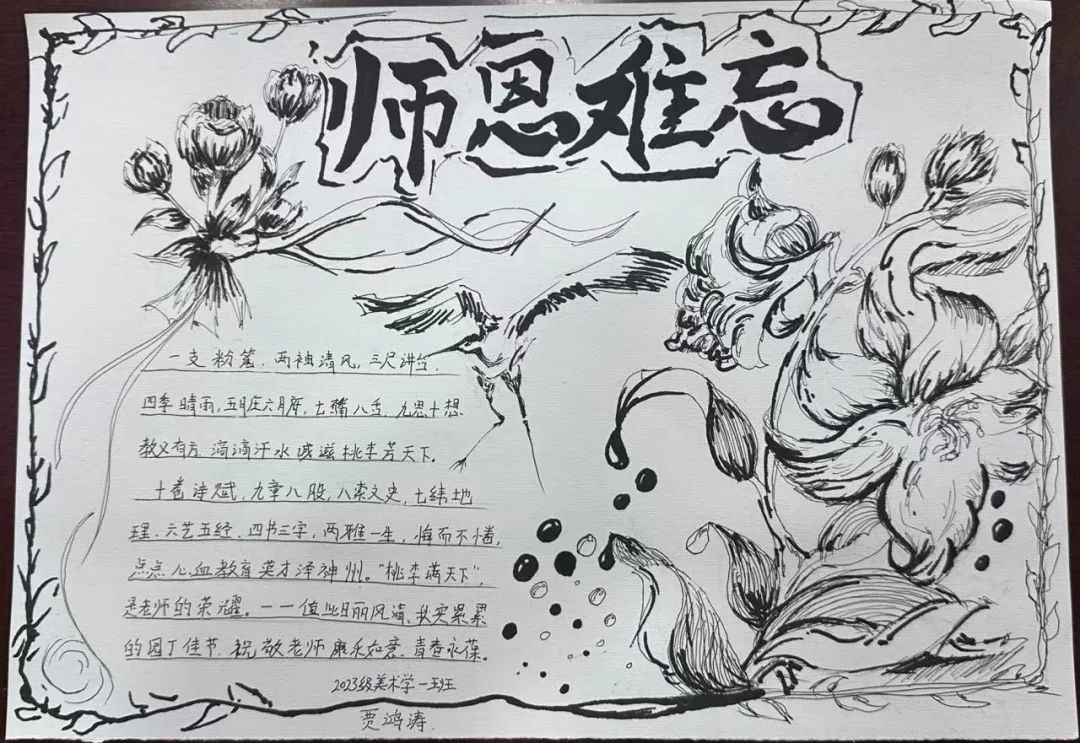 师恩难忘
一支粉笔.两袖清风,三尺讲台.
四季晴雨,五月庄六月府,七嘴八舌.九思十想.
教义有方.滴滴汗水 滋桃李芳天下。
十卷诗赋,九章八股,八索文史,七纬地
理、六艺五经、四书三字,两雅一生,悔而不惓,
点点心血教育英才泽神州。“桃李满天下”,
是老师的荣耀。一一值此日丽风清、秋实累累
的园丁佳节.祝敬老师康乐如意.青春永葆。
2023级美术学一班
贾鸿涛.